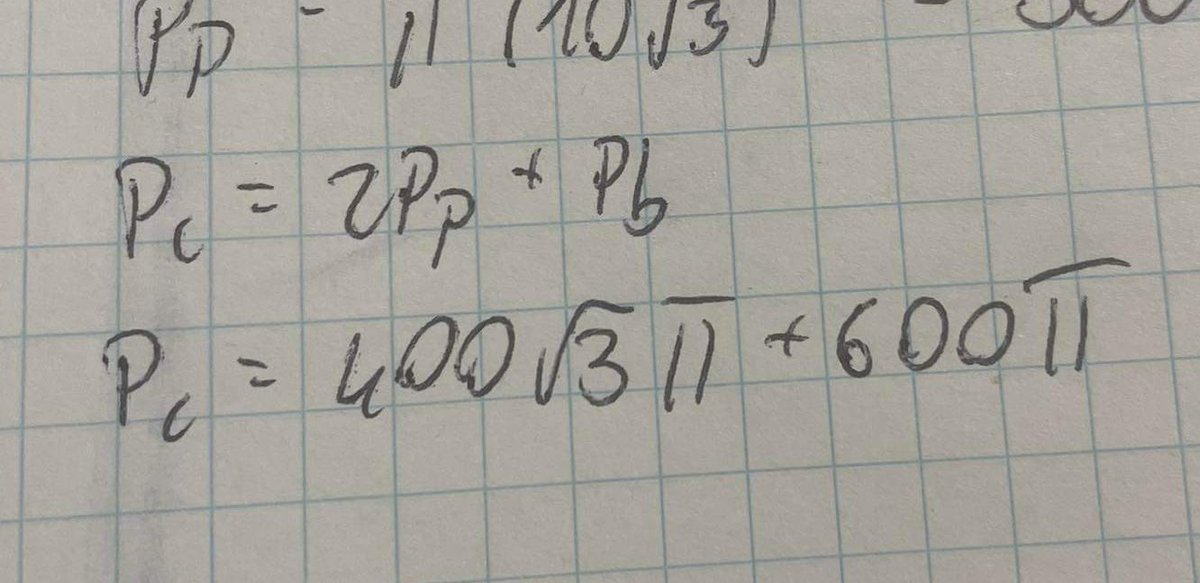 Pp = π (10√3) = 300
Pc = 2Pp + Pb
Pc = 400√3 π + 600π